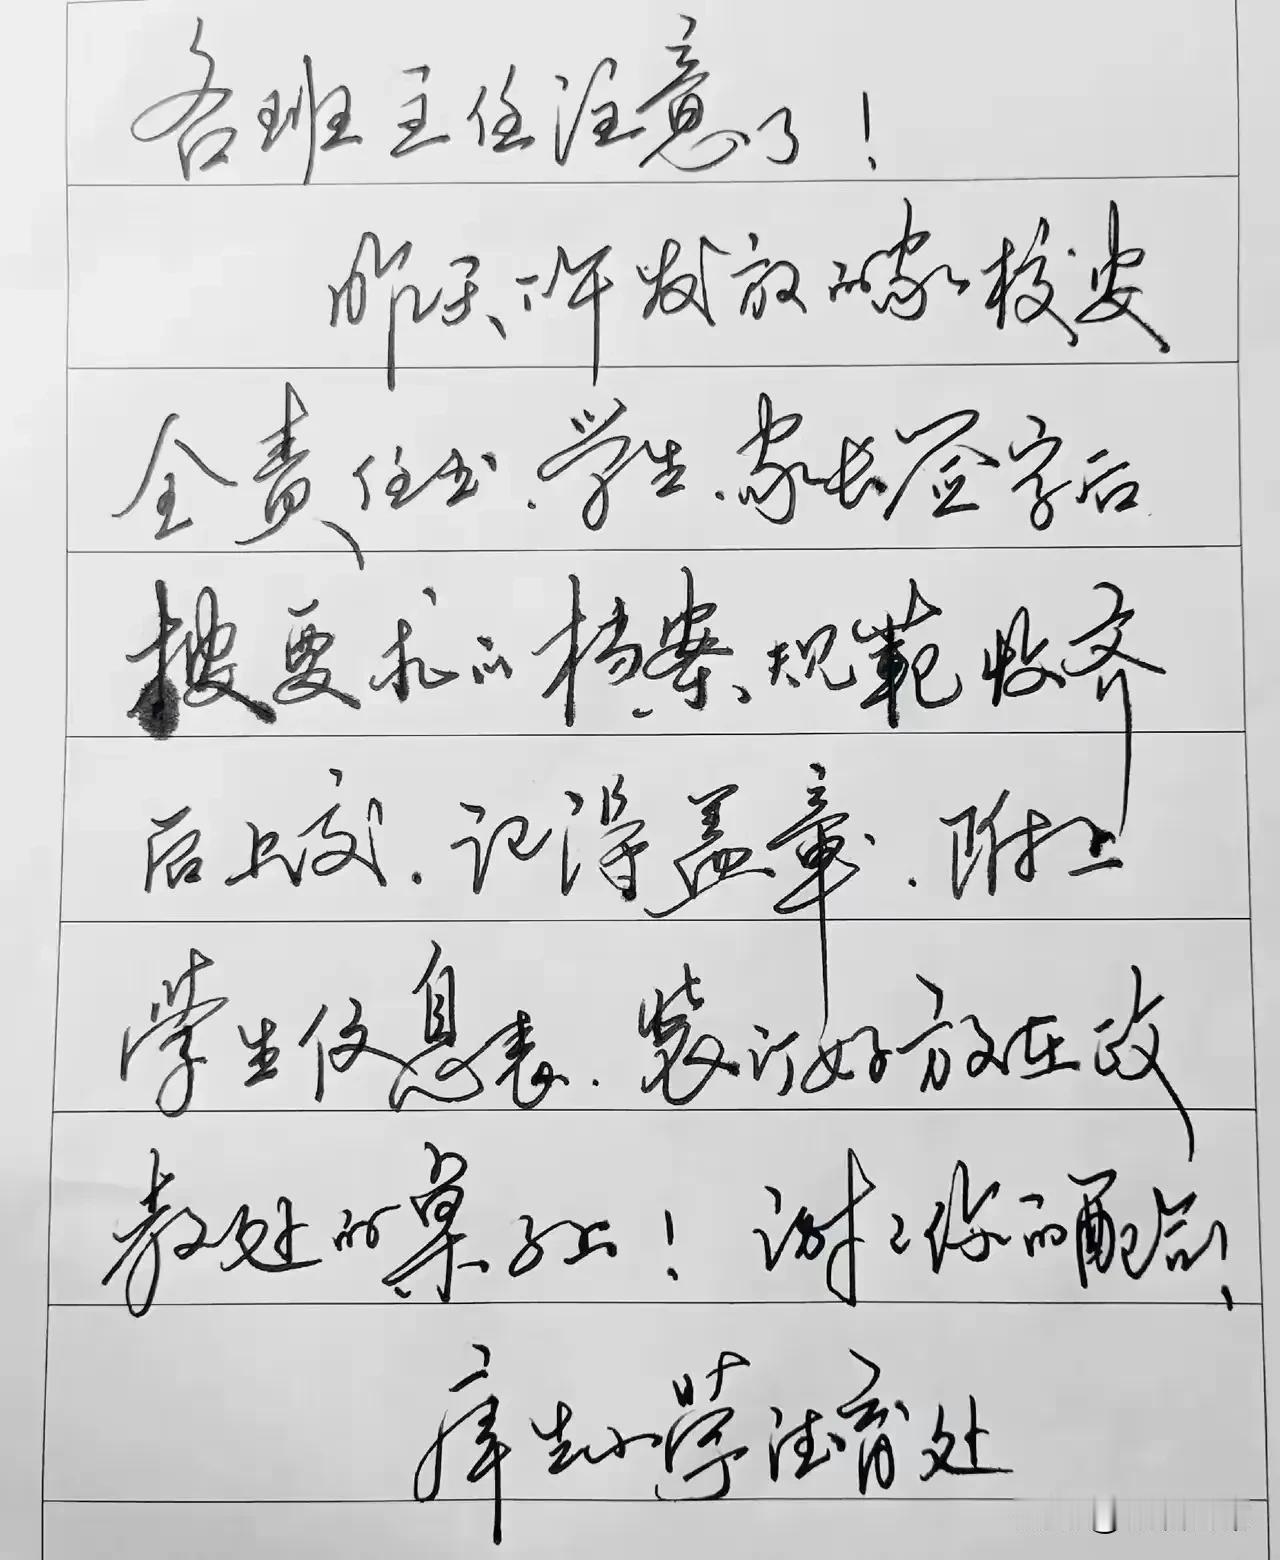 各班主任注意了！
昨天下午发放的家校安
全责任书、学生、家长签字后
按要求的档案、规範收齐
后上交、记得盖章、附上
学生信息表、装订好放在政
教处的桌子上！谢谢你的配合！
库生小学德育处